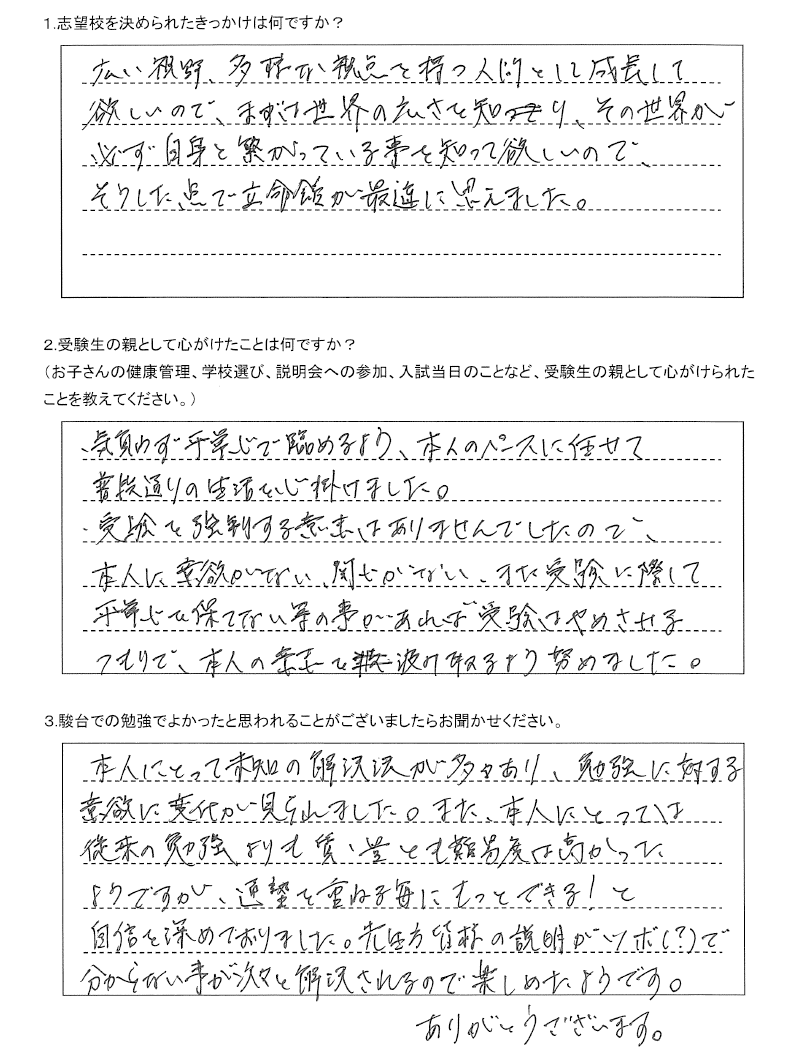 1.志望校を決められたきっかけは何ですか？
広い視野、多様な視点を持つ人間として成長して
欲しいので、まずは世界の広さを知り、その世界が
必ず自身と繋がっている事を知って欲しいので、
そうした点で立命館が最適に思えました。
2.受験生の親として心がけたことは何ですか？
（お子さんの健康管理、学校選び、説明会への参加、入試当日のことなど、受験生の親として心がけられた
ことを教えてください。）
・気負わず平常心で臨めるよう、本人のペースに任せて
普段通りの生活を心掛けました。
・受験を強制する意志はありませんでしたので、
本人に意欲がない、関心がない、また受験に際して
平常心を保てない等の事があれば受験はやめさせる
つもりで、本人の意志を汲み取るよう努めました。
3.駿台での勉強でよかったと思われることがございましたらお聞かせください。
本人にとって未知の解決法が多々あり、勉強に対する
意欲に変化が見られました。また、本人にとっては
従来の勉強よりも質・量とも難易度は高かった
ようですが、 を重ねる毎にもっとできる！と
自信を深めておりました。先生方皆様の説明がツボ(？)で
分からない事が次々と解決されるので楽しめたようです。
ありがとうございます。